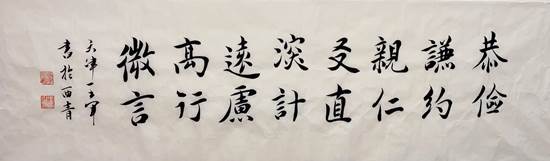 恭儉
謙約
親仁
友直
深計
遠慮
高行
微言
天津
書於西青